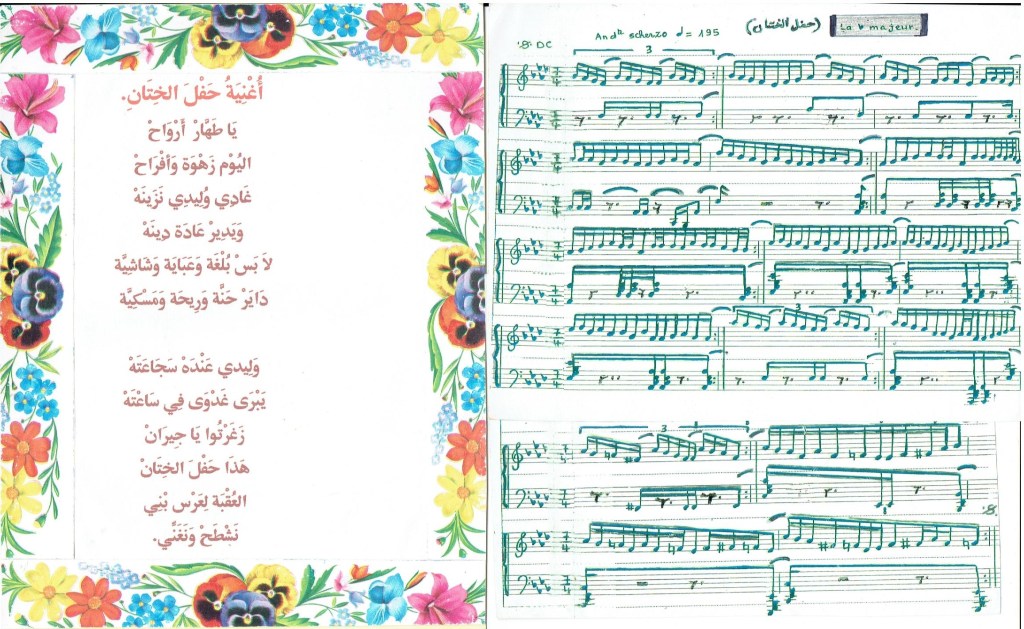 أُغْنِيَةُ حَفْلَ الخِتَانِ.
يَا طَهَّارْ أَرْوَاحْ
اليُوْم زَهْوَة وَأَفْرَاحْ
غَادِي وُلِيدِي نَزَيْنَهْ
وَيَدِيرْ عَادَة دِينَهْ
لاَ بَسْ بُلْغَة وَعَبَايَة وَشَاشِيَّة
دَايَرْ حَنَّة وَرِيحَة وَمَسْكِيَّة
وَلِيدي عَنْدَهْ سَجَاعَتَهْ
يَبْرَى غَدْوَى فِي سَاعْتَهْ
زَغَرْتُوا يَا جِيرَانْ
هَذَا حَفْلَ الخِتَانْ
العُقْبَة لِعَرْس بْنِي
نَشْطَحْ وَنَغَنِّي.
(حفل الختان)
La b majeur
DC
And te scherzo = 195
3
3
3